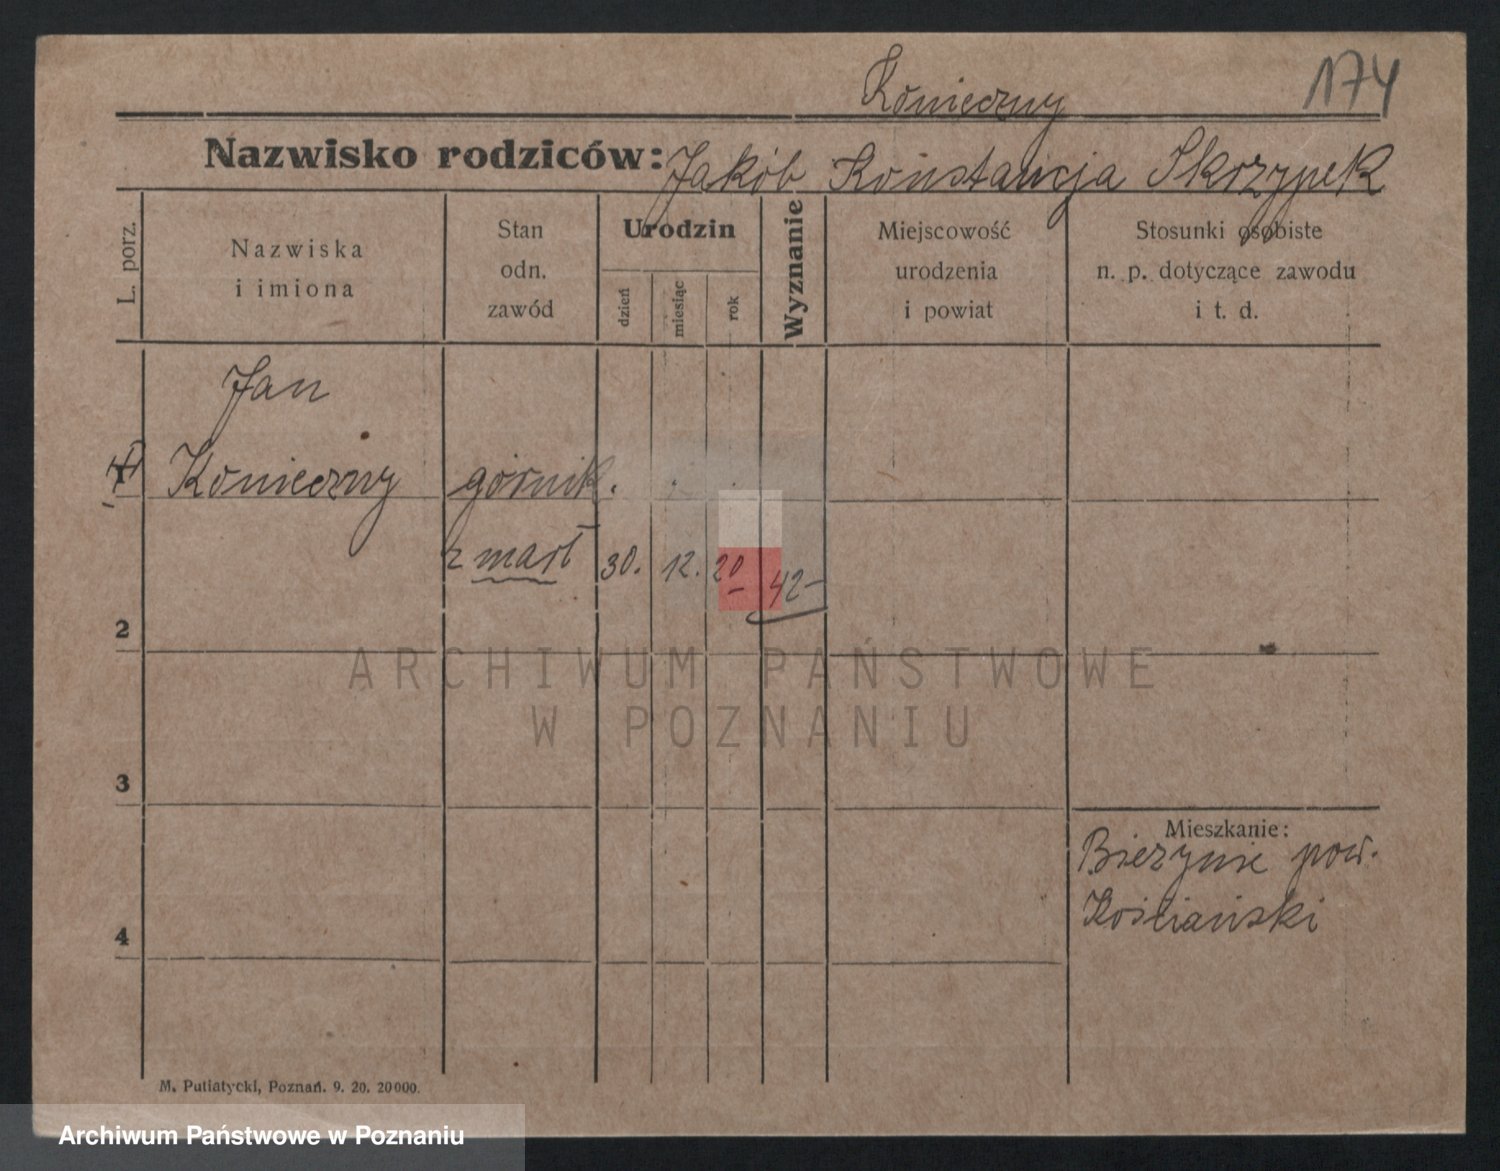 174
Konieczny
Nazwisko rodziców: Jakób Konstancja Skrzypek
L. porz.
Nazwiska
i imiona
Stan
odn.
zawód
Urodzin
dzień
miesiąc
rok
Wyznanie
Miejscowość
urodzenia
i powiat
Stosunki osobiste
n. p. dotyczące zawodu
i t. d.
Jan
Konieczny górnik.
zmarł 30. 12. 20 42
2
ARCHIWUM PAŃSTWOWE
W POZNANIU
3
Mieszkanie:
Bieżynie pow.
Kościański
4
M. Putiatycki, Poznań. 9. 20. 20000.
Archiwum Państwowe w Poznaniu